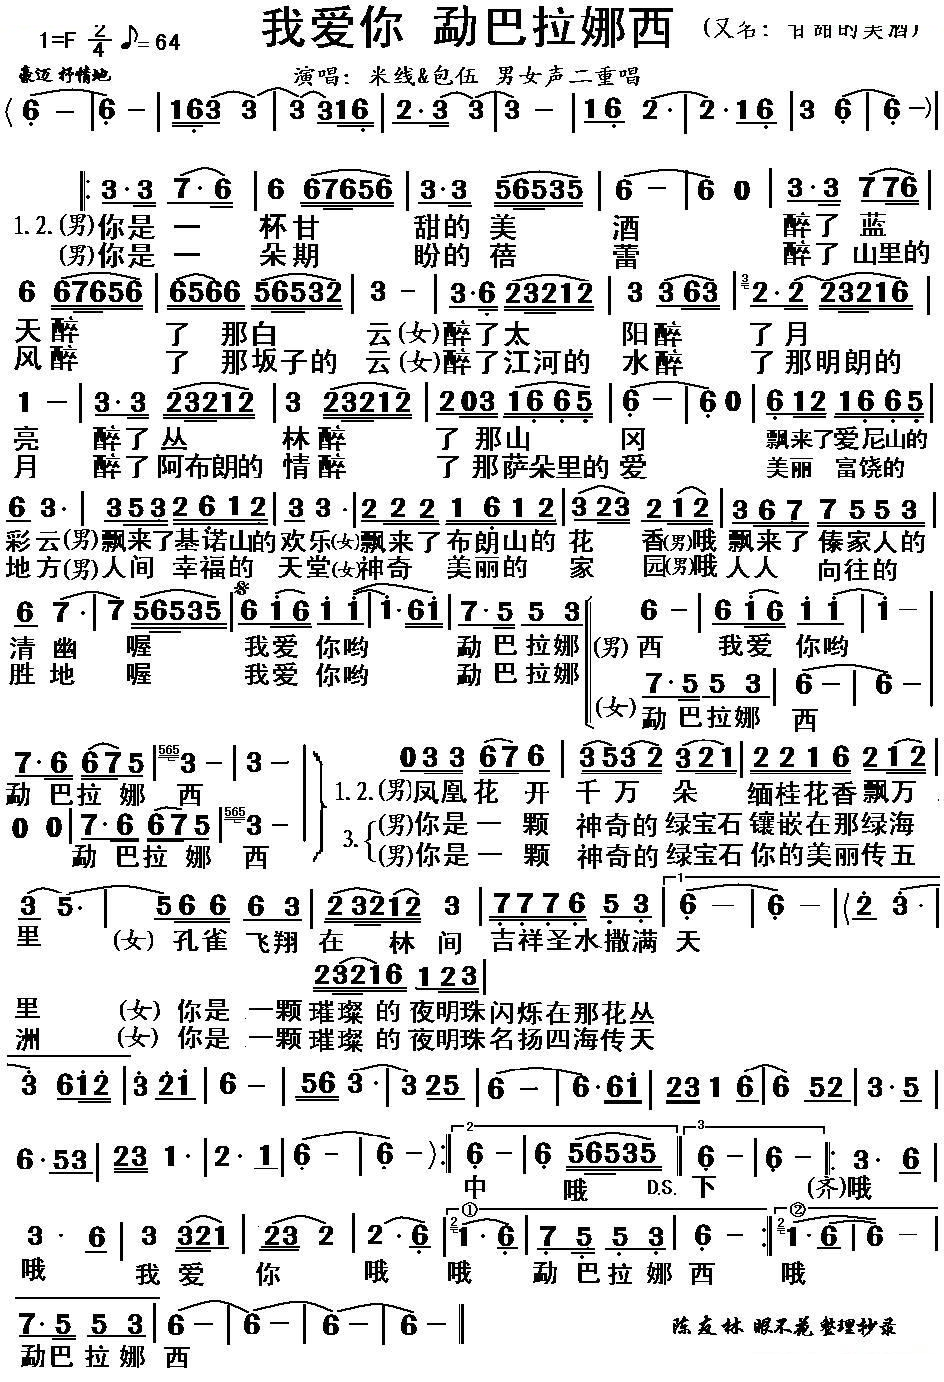 我爱你 勐巴拉娜西 (又名：甘甜的美酒)
1=F 2/4 ♪=64
豪迈 抒情地
演唱：米线&包伍 男女声二重唱
(6 - | 6 - | 163 3 | 3 3316 | 2·3 3 | 3 - | 16 | 2· 2 | 2·16 | 3 6 | 6 - )|
|: 3·3 7·6 | 6 67656 | 3·3 56535 | 6 - | 6 0 | 3·3 776 |
1.2.(男)你是一 杯甘 甜的美 酒 醉了蓝
(男)你是一 朵期 盼的蓓 蕾 醉了山里的
6 67656 | 6566 56532 | 3 - | 3·6 23212 | 3 363 | 3 2·2 23216 |
天醉 了 那白 云(女)醉了太 阳醉 了月
风醉 了 那坂子的 云(女)醉了江河的 水醉 了那明朗的
1 - | 3·3 23212 | 3 23212 | 203 1665 | 6 - | 6 0 | 612 1665 |
亮 醉了丛 林醉 了那山 冈 飘来了爱尼山的
月 醉了阿布朗的 情醉 了那萨朵里的 爱 美丽 富饶的
6 3· | 353 2612 | 33 3· | 222 1612 | 323 212 | 367 7553 |
彩云(男)飘来了基诺山的 欢乐(女)飘来了布朗山的 花 香(男)哦 飘来了 傣家人的
地方(男)人间 幸福的 天堂(女)神奇 美丽的 家 园(男)哦 人人 向往的
6 7· | 7 56535 | 616 11 | 1·61 | 7·5 53 | 6 - | 616 11 | 1 - |
清幽 喔 我爱 你哟 勐巴拉娜 (男)西 我爱 你哟
胜地 喔 我爱 你哟 勐巴拉娜
7·5 53 | 6 - | 6 - |
(女)勐巴拉娜 西
7·6 675 | 565 3 - | 3 - | 033 676 | 3532 321 | 2216 212 |
勐巴拉娜 西 1.2.(男)凤凰花 开 千万 朵 缅桂花香飘万
0 0 | 7·6 675 | 565 3 - | 3.(男)你是一 颗 神奇的绿宝石镶嵌在那绿海
勐巴拉娜 西 (男)你是一 颗 神奇的绿宝石你的美丽传五
3 5· | 566 63 | 23212 3 | 7776 53 | 1 6 - | 6 - | (2 3· |
里 (女)孔雀 飞翔 在 林 间 吉祥圣水撒满 天
23216 123 |
里 (女)你是 一颗 璀璨 的 夜明珠闪烁在那花丛
洲 (女)你是 一颗 璀璨 的 夜明珠名扬四海传天
3 612 | 3 21 | 6 - | 56 3· | 3 25 | 6 - | 6·61 | 23 1 6 | 6 52 | 3·5 |
6·53 | 23 1· | 2·1 | 6 - | 6 - ) :| 2 6 - | 6 56535 | 3 6 - | 6 - |: 3· 6 |
中 哦 D.S. 下 (齐)哦
3· 6 | 3 321 | 23 2 | 2·6 | ① 2 1·6 | 6 - | 7 5 5 3 | 6 - :| ② 2 1·6 | 6 - |
哦 我爱 你 哦 哦 勐巴拉娜 西 哦
7·5 53 | 6 - | 6 - | 6 - | 6 - ||
勐巴拉娜 西
陈友林 眼不花 整理抄录